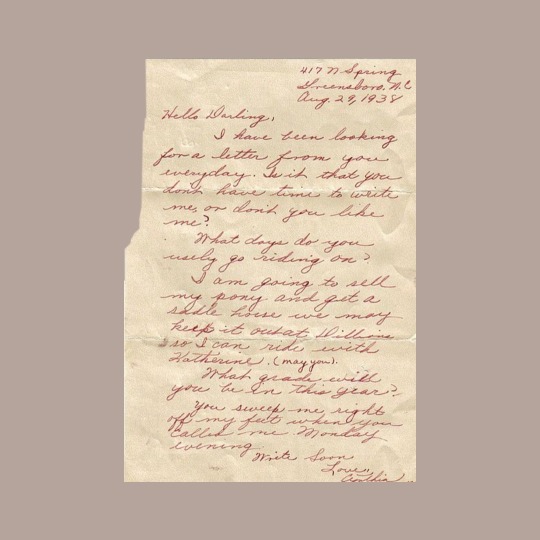 417 N Spring
Greensboro, N.C
Aug. 29, 1938
Hello Darling,
I have been looking
for a letter from you
everyday. Is it that you
don't have time to write
me, or don't you like
me?
What days do you
usely go riding on?
I am going to sell
my pony and get a
sable horse we may
keep it out at Dillions
so I can ride with
Katherine. (may you).
What grade will
you be in this year?
You sweep me right
off my feet when you
called me Monday
evening.
Write Soon
Love,,
Cynthia